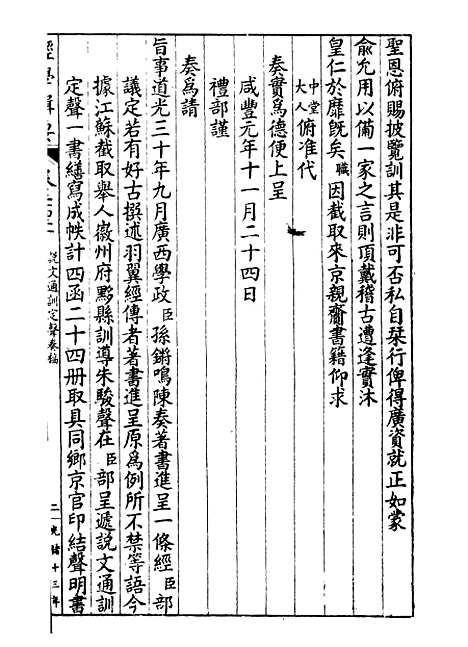 聖恩俯賜披覽訓其是非可否私自栞行俾得廣資就正如蒙
俞允用以備一家之言則頂戴稽古遭逢實沐
皇仁於靡旣矣職因截取來京親齎書籍仰求
中堂大人俯准代
奏實爲德便上呈
咸豐元年十一月二十四日
禮部謹
奏爲請
旨事道光三十年九月廣西學政臣孫鏘鳴陳奏著書進呈一條經臣部
議定若有好古撰述羽翼經傳者著書進呈原爲例所不禁等語今
據江蘇截取舉人徽州府黟縣訓導朱駿聲在臣部呈遞說文通訓
定聲一書繕寫成帙計四函二十四册取具同鄉京官印結聲明書
說文通訓定聲奏稿
二
光緖十三年